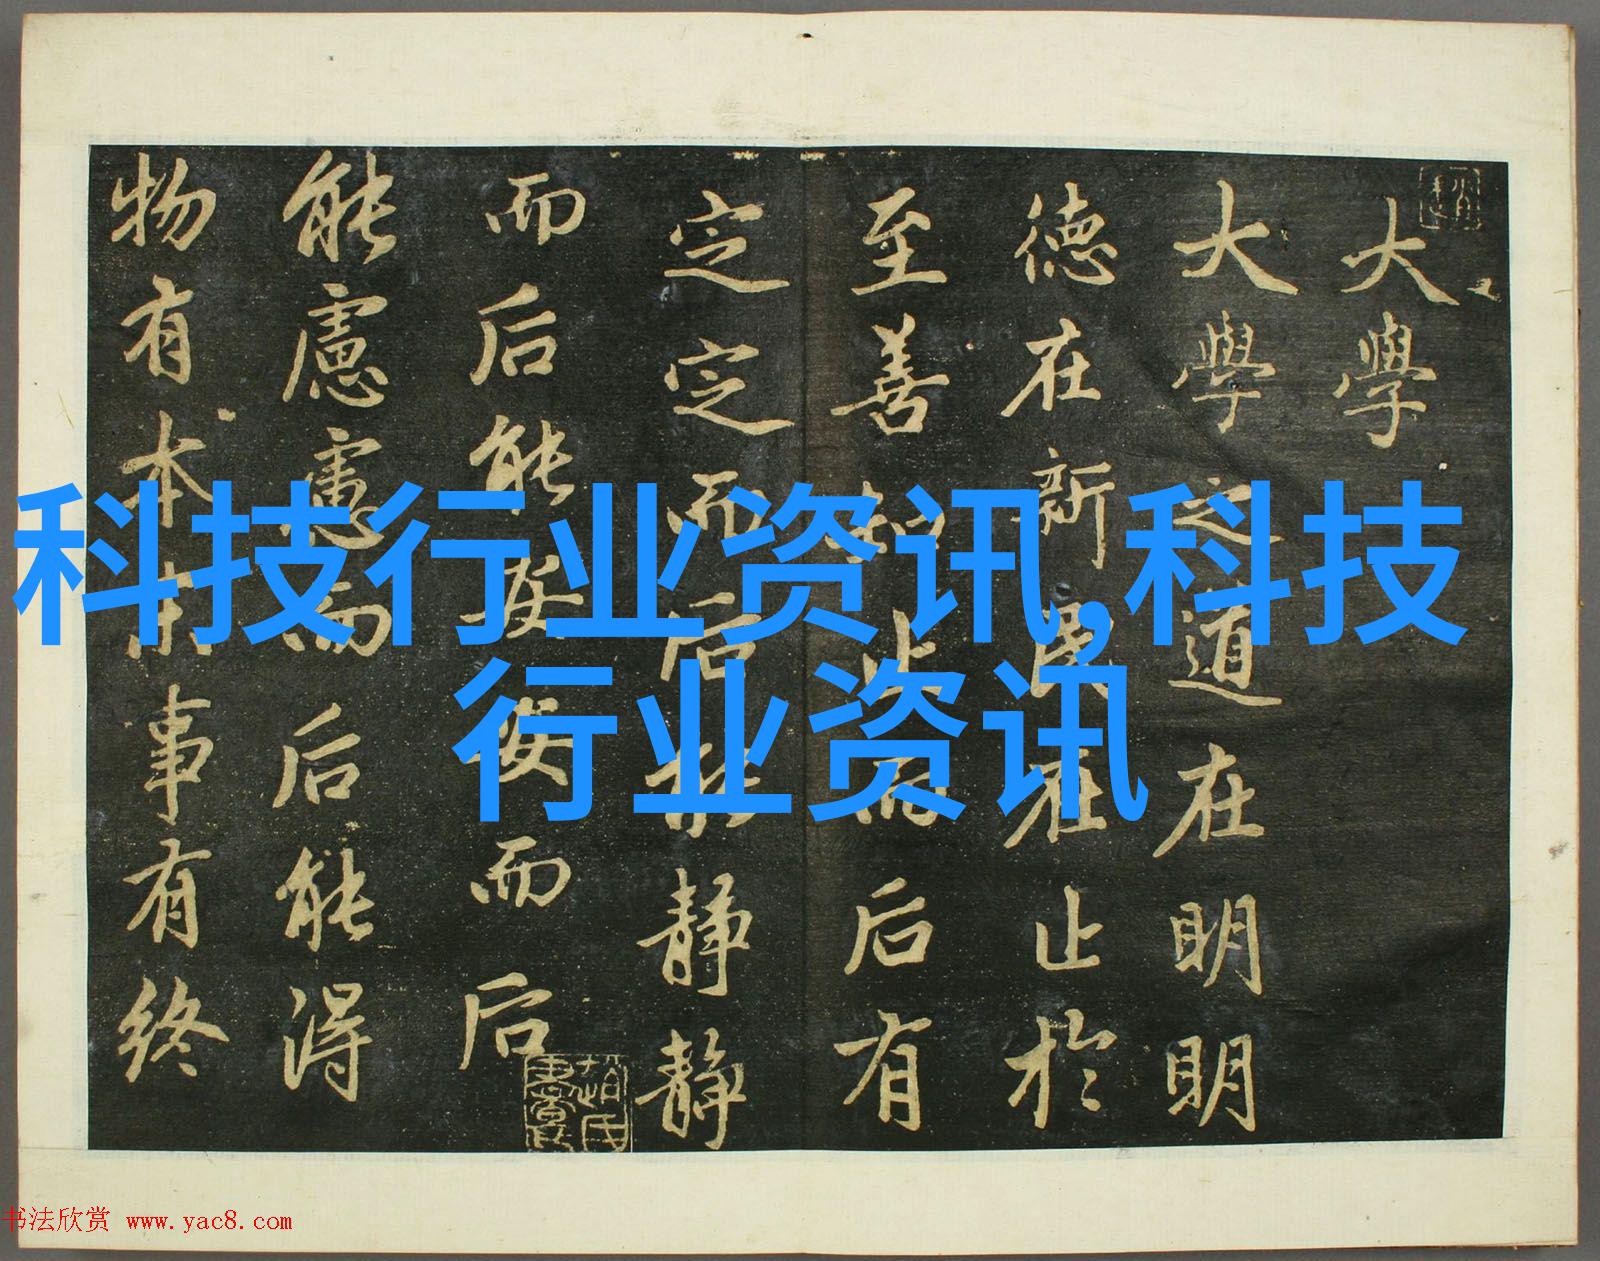 科技行业资讯,科技
行业资讯
大學
大學之道在明明
德在新民在止於
至善知止而后有
定定而后能静静
而后能安安而后
能慮慮而后能得
物有本末事有終
书法欣赏 www.yac8.com